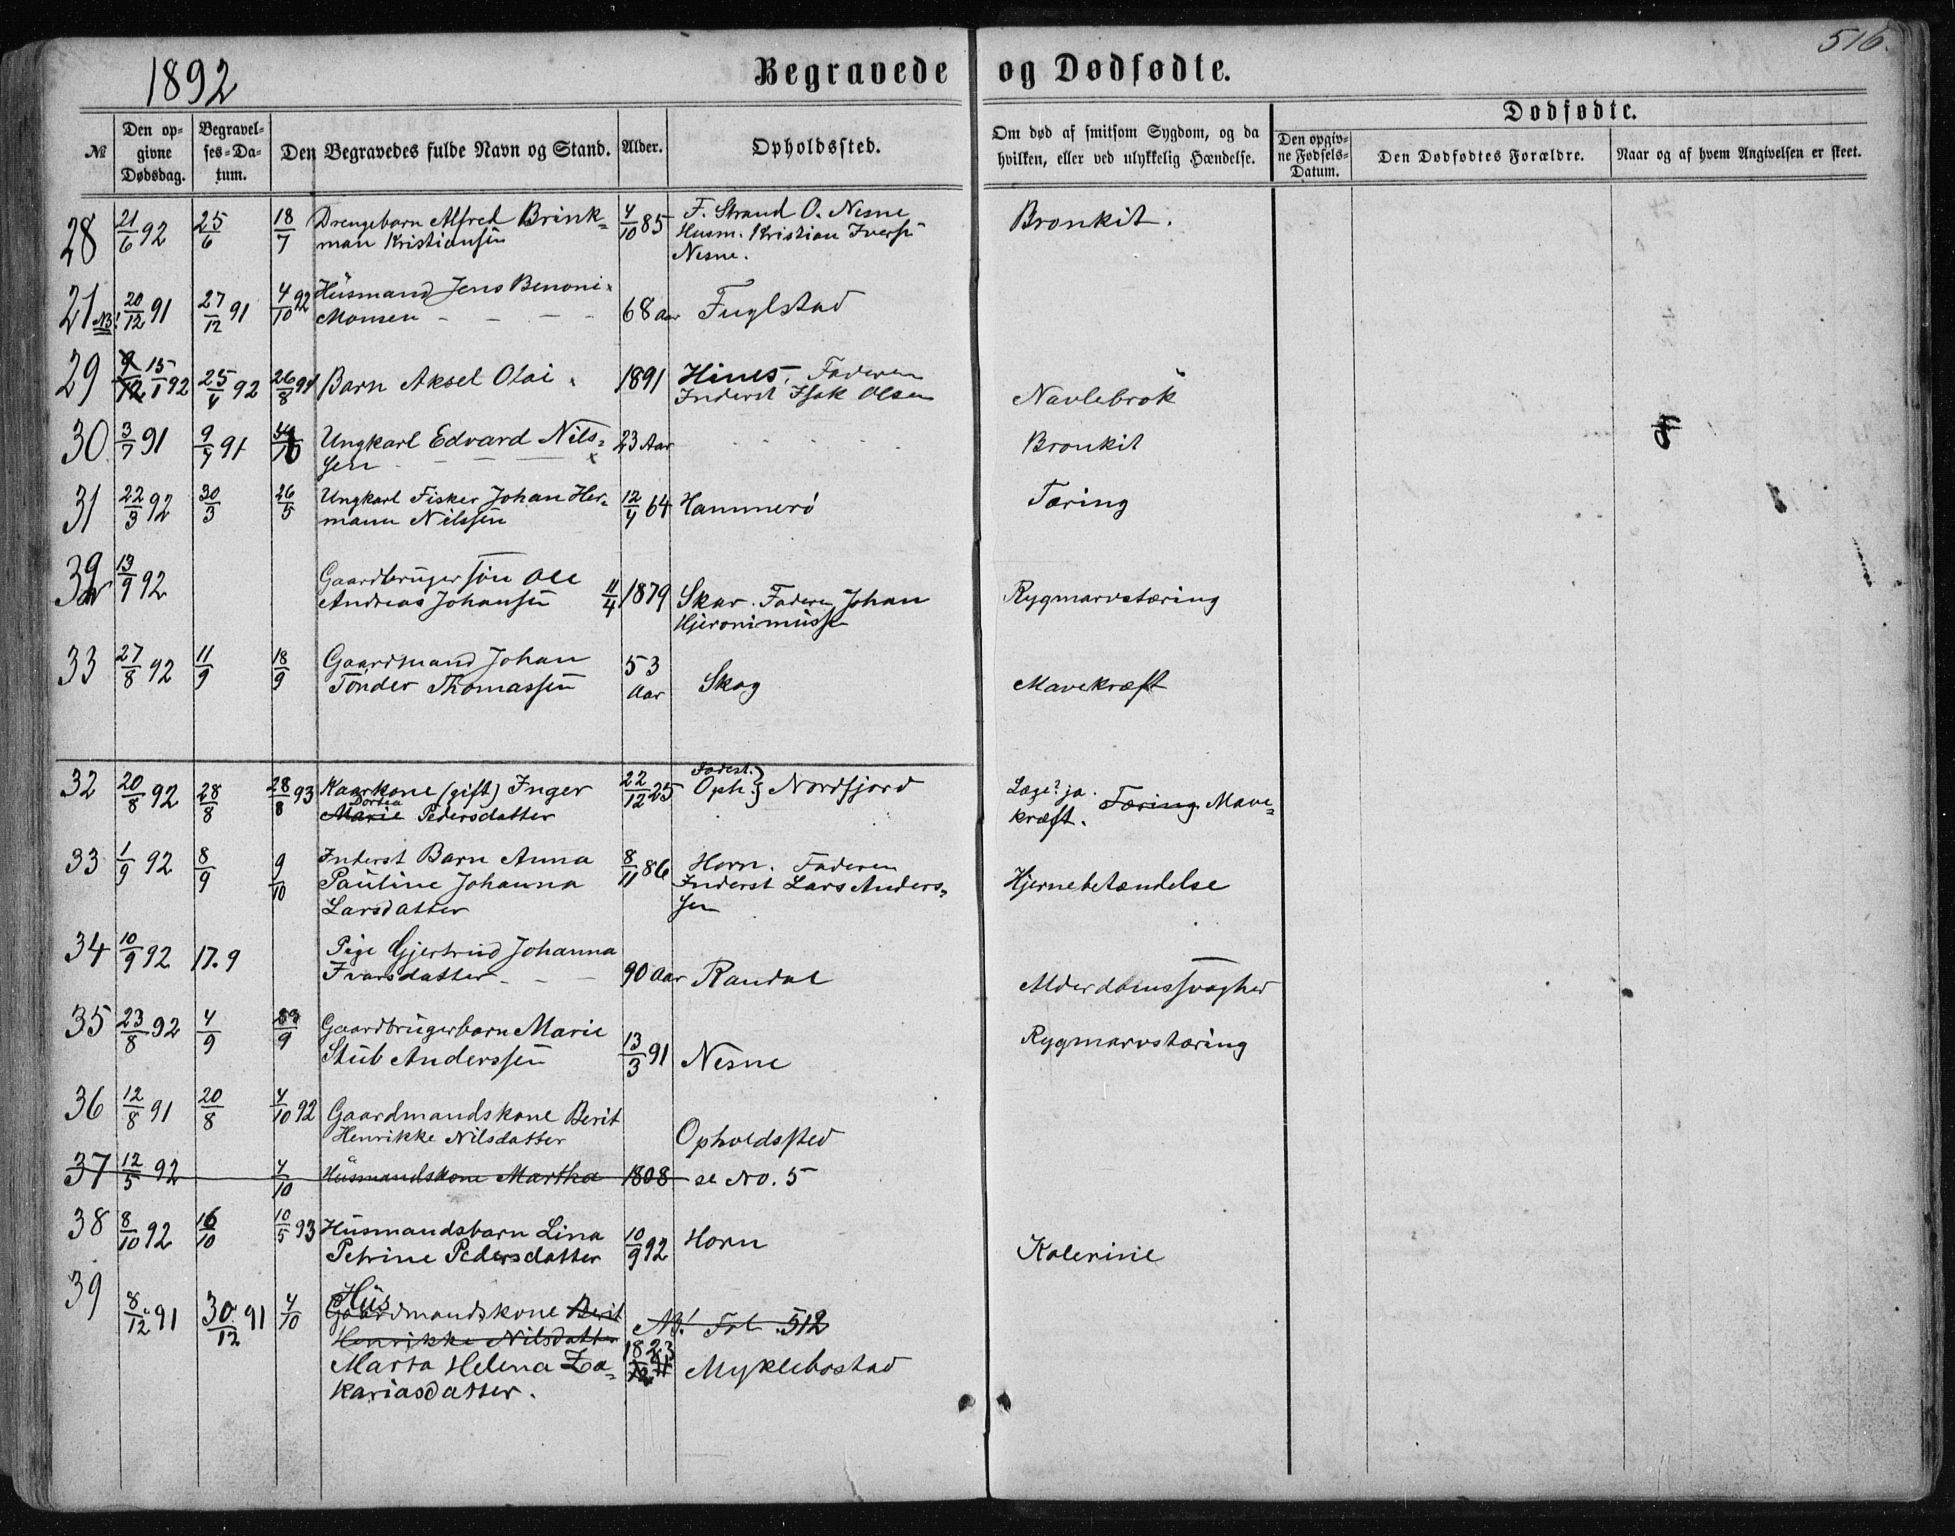 516.
1892
Begravede og Dødfødte.
№
Den op-
givne
Dødsdag.
Begravel-
ses-Da-
tum.
Den Begravedes fulde Navn og Stand.
Alder.
Opholdssted.
Om død af smitsom Sygdom, og da
hvilken, eller ved ulykkelig Hændelse.
Dødfødte.
Den opgiv-
ne Fødsels-
Datum.
Den Dødfødtes Forældre.
Naar og af hvem Angivelsen er skeet.
28 21/6 92 25/6 18/7 Drengebarn Alfred Brink- 4/10 85 F. Strand O. Nesne Bronkit.
man Kristiansen Husm. Kristian Iversn
Nesne.
21 NB! 20/12 91 27/12 91 4/10 92 Husmand Jens Benoni
Monsen - - - - 68 aar Fuglstad
29 15/1 92 25/4 92 26/8 91 Barn Aksel Olai 1891 Hines, Faderen
Inderst Isak Olsen Navlebrok
30 3/7 91 9/7 91 Ungkarl Edvard Nils- 23 Aar Bronkit
sen
31 22/3 92 30/3 26/5 Ungkarl Fisker Johan Her- 12/4 64 Hammerö Tæring
mann Nilssen
32 13/9 92 Gaardbruger sön Ole
Andreas Johansen 11/4 1879 Skar. Faderen Johan Rygmarvstæring
Hjeronimussen
33 27/8 92 11/9 18/9 Gaardmand Johan 53
Tönder Thomassen Aar Skog Mavekræft
32 20/8 92 28/8 28/8 93 Kaarkone (gift) Inger 22/12 25 Fodest. Oph. } Nordfjord Læge? ja. Tæring Mave-
Dortea
Marie Pedersdatter kræft.
33 1/9 92 8/9 9/10 Inderst Barn Anna 8/11 86 Horn. Faderen
Pauline Johanna Inderst Lars Anders- Hjernebetændelse
Larsdatter sen
34 10/9 92 17.9 Pige Gjertrud Johanna
Ivarsdatter - - 90 Aar Randal Alderdomssvaghed
35 23/8 92 4/9 Gaardbrugerbarn Marie Rygmarvstæring
Stub Anderssen 13/3 91 Nesne
36 12/8 91 20/8 4/10 92 Gaardmandskone Berit
Henrikke Nilsdatter Opholdssted
37 12/5 92 4/10 Husmandskone Martha 1808 se No. 5
38 8/10 92 16/10 10/5 93 Husmandsbarn Lina 10/9 92 Horn
Petrine Pedersdatter Kolerine
39 8/12 91 30/12 91 4/10 Hus
Gaardmandskone Berit NB! Fol. 512
Henrikke Nilsdatter
Marta Helena Za- 1823 Myklebostad
kariasdatter.